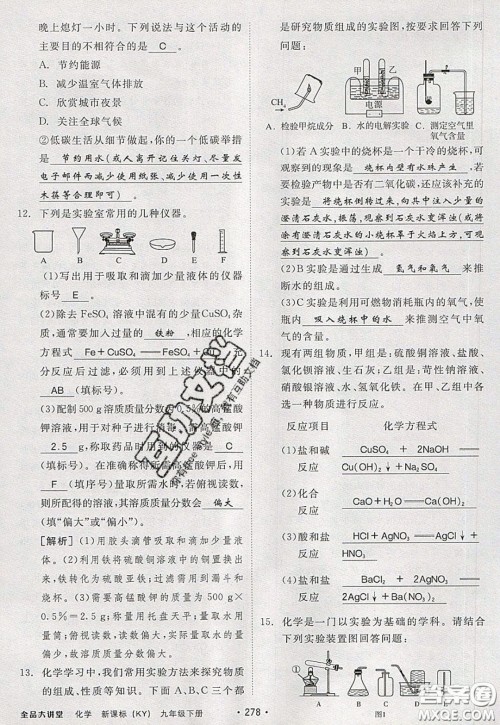 晚上熄灯一小时。下列说法与这个活动的
主题不相符合的是 C 。
A. 节约能源
B. 减少温室气体排放
C. 欣赏城市夜景
D. 关注全球气候
②低碳生活,你的一个低碳举措
是 节约用水(或人离开记住关灯、尽量发
电子邮件而减少使用纸张、减少使用一次性
木筷等合理即可) 。
12. 下列是实验室常用的几种仪器。
A B C D E
(1)写出用于吸取和滴加少量液体的仪器
标号 E 。
(2)除去FeSO₄溶液中的少量CuSO₄杂质,
可加入过量的 铁粉 ,相应的化学
方程式 Fe+CuSO₄══FeSO₄+Cu 。充
分反应后过滤,必须用到上述仪器中的
AB (填标号)。
(3)配制500 g溶质质量分数为0.5%的高锰酸
钾溶液,用于对种子进行消毒,需高锰酸钾
2.5 g,称取药品时用到的仪器是 C
(填标号)。在准确称得所需的高锰酸钾后,
若用量筒量取所需水时,若俯视读数,
则所配得的溶液,其溶质质量分数会 偏大
(填“偏大”或“偏小”)。
[解析] (1)用胶头滴管吸取和滴加少量液
体。(2)利用铁将硫酸铜溶液中的铜置换出
来,铁转化为硫酸亚铁;过滤需要烧杯和漏
斗。(3)需要高锰酸钾的质量为500 g
×0.5%=2.5 g;称量用托盘天平;量取水用
量筒;俯视读数,读数偏大,量取的水偏少。
13. 化学学习中,我们常用实验方法来探究物质
的组成、性质等知识。下面A、B、C三个都
全品大讲堂 化学 新课标(KY) 九年级下册
278
是研究物质组成的实验图,按要求回答下列
问题:
甲 乙
电源
CH₄
A. 检验甲烷成分 B. 水的电解实验 C. 测定空气里
氧气成分
(1)若A实验的烧杯是一个干冷的烧杯,可
观察到的现象是 烧杯内壁有水珠产生 ,若
要检验产物中是否有二氧化碳,还应该补充的
实验是 将烧杯倒转过来,向其中注入少量的
澄清石灰水,振荡,观察到石灰水变浑浊(或将内
壁涂有澄清石灰水的小烧杯罩于火焰上方,可观
察到石灰水变浑浊) 。
(2)B实验是通过生成 氢气和氧气 来
推测水的组成。
(3)C实验是利用可燃物消耗瓶内的氧气,使
瓶内 吸入烧杯中的水 来推测空气中氧
气的含量。
14. 现有两组物质,甲组是:硫酸铜溶液、盐酸、
氯化钡溶液、生石灰;乙组是:硝酸银溶液、
稀硝酸、水、氢氧化钛。在甲、乙组中各选一
种物质进行反应。
反应项目 化学方程式
(1)盐和碱 CuSO₄ + 2NaOH ══
反应 Cu(OH)₂↓+Na₂SO₄
(2)化合
反应
(3)酸和盐 HCl+AgNO₃══AgCl↓+
反应 HNO₃
(4)盐和盐 BaCl₂ + 2AgNO₃ ══
反应 2AgCl↓+Ba(NO₃)₂
15. 化学是一门以实验为基础的学科。请结合
下列实验装置图回答问题:
图1